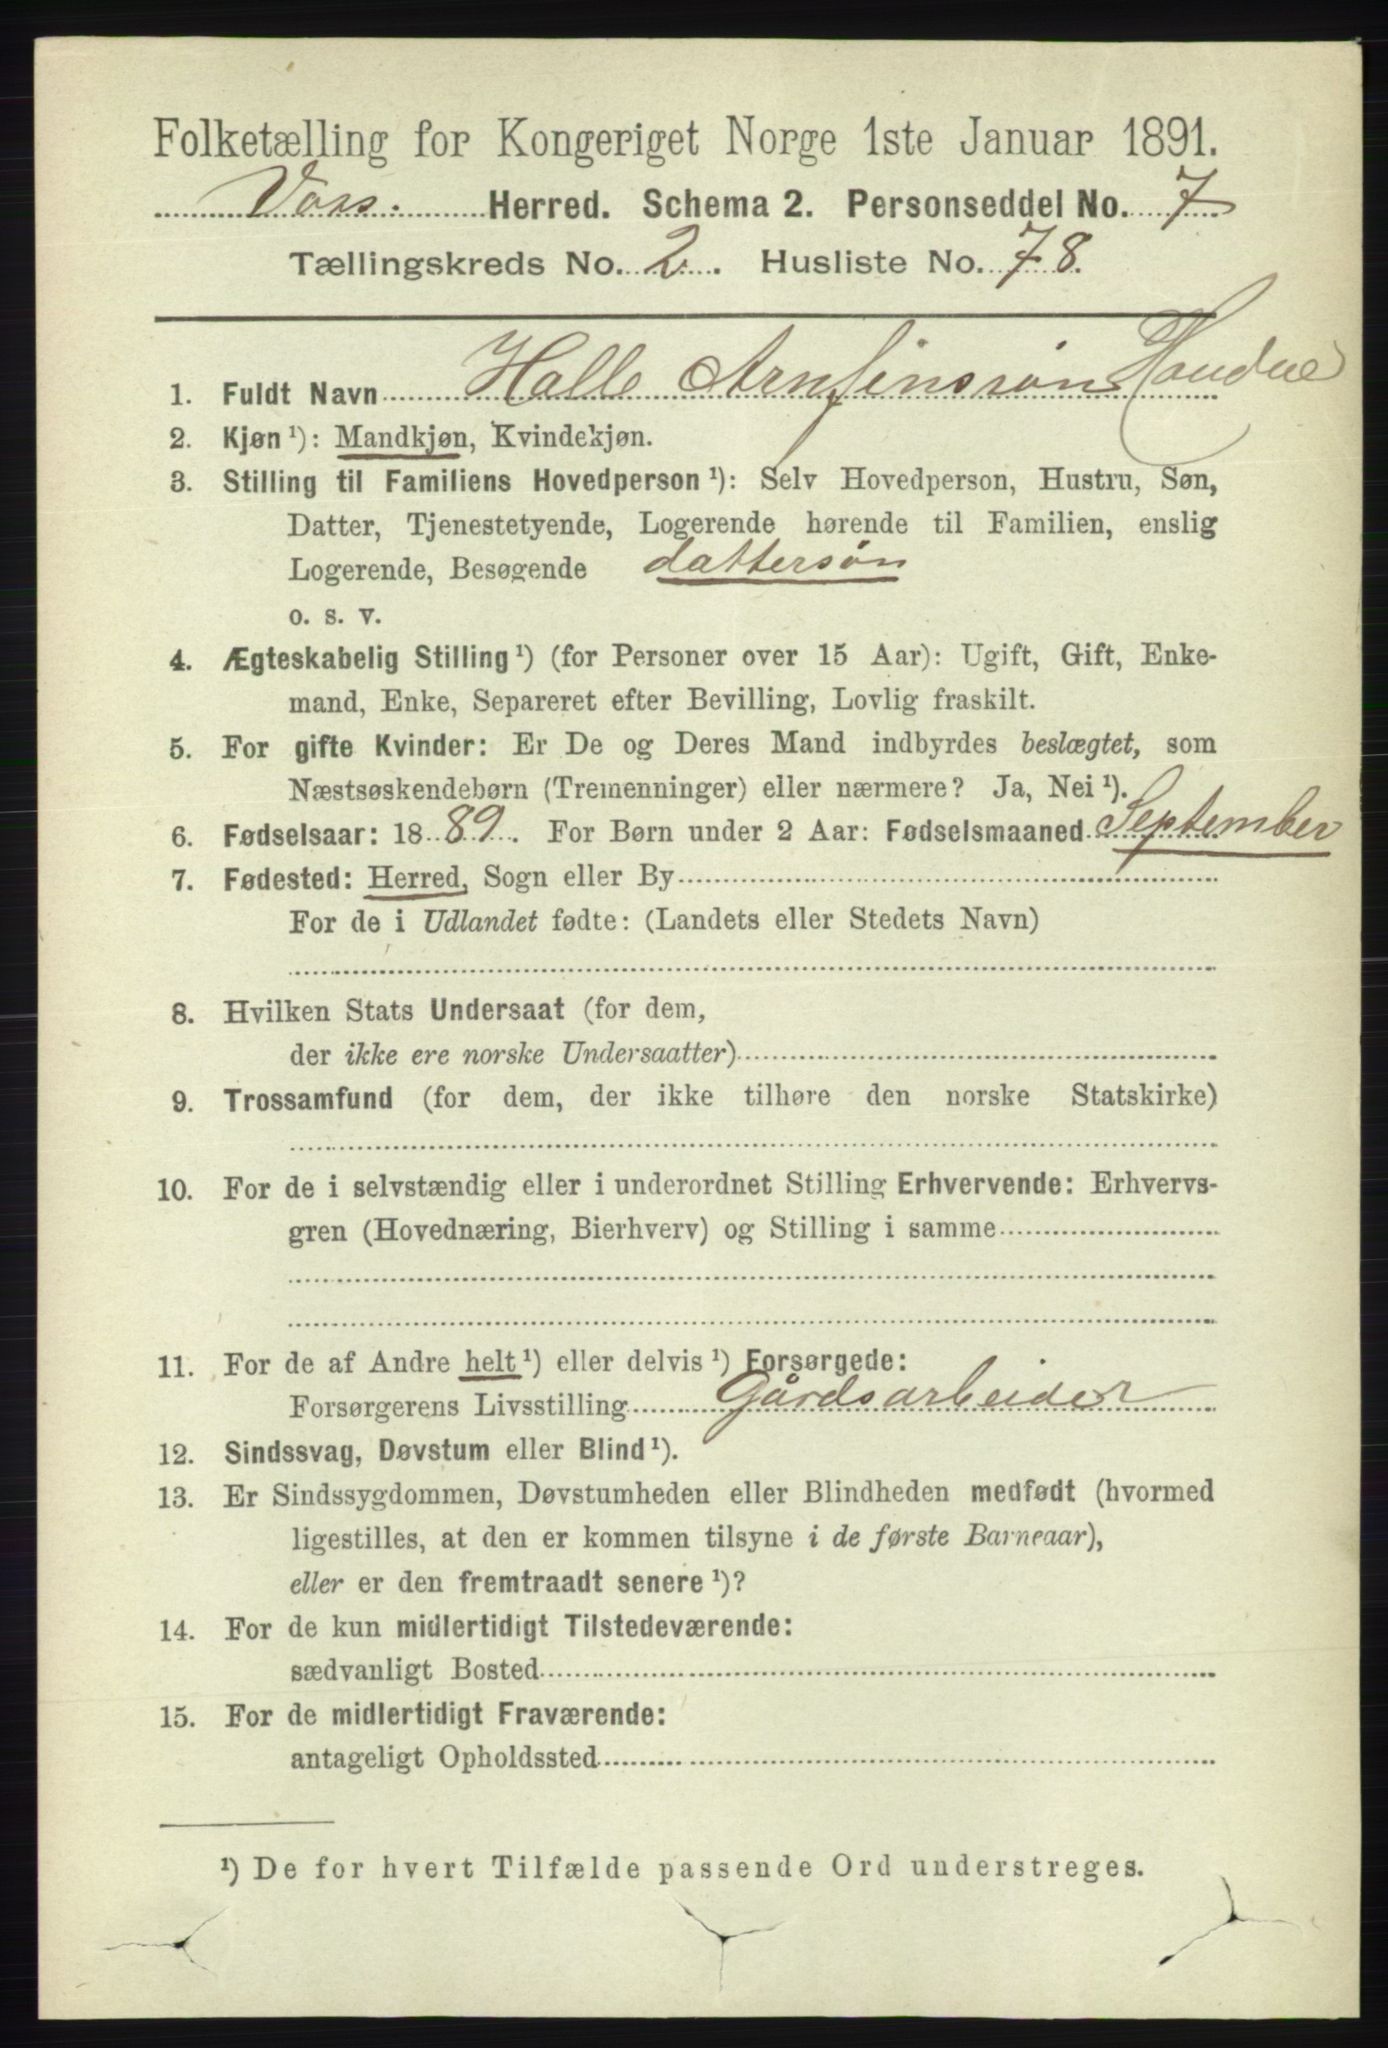 Folketælling for Kongeriget Norge 1ste Januar 1891.
Voss. Herred. Schema 2. Personseddel No. 7
Tællingskreds No. 2. Husliste No. 78.
1. Fuldt Navn Halle Arnfinssøn
2. Kjøn ¹): Mandkjøn, Kvindekjøn.
3. Stilling til Familiens Hovedperson ¹): Selv Hovedperson, Hustru, Søn,
Datter, Tjenestetyende, Logerende hørende til Familien, enslig
Logerende, Besøgende dattersøn
o. s. v.
4. Ægteskabelig Stilling ¹) (for Personer over 15 Aar): Ugift, Gift, Enke-
mand, Enke, Separeret efter Bevilling, Lovlig fraskilt.
5. For gifte Kvinder: Er De og Deres Mand indbyrdes beslægtet, som
Næstsøskendebørn (Tremenninger) eller nærmere? Ja, Nei ¹).
6. Fødselsaar: 1889. For Børn under 2 Aar: Fødselsmaaned September
7. Fødested: Herred, Sogn eller By
For de i Udlandet fødte: (Landets eller Stedets Navn)
8. Hvilken Stats Undersaat (for dem,
der ikke ere norske Undersaatter)
9. Trossamfund (for dem, der ikke tilhøre den norske Statskirke)
10. For de i selvstændig eller i underordnet Stilling Erhvervende: Erhvervs-
gren (Hovednæring, Bierhverv) og Stilling i samme
11. For de af Andre helt ¹) eller delvis ¹) Forsørgede:
Forsørgerens Livsstilling Gårdsarbeider
12. Sindssvag, Døvstum eller Blind ¹).
13. Er Sindssygdommen, Døvstumheden eller Blindheden medfødt (hvormed
ligestilles, at den er kommen tilsyne i de første Barneaar),
eller er den fremtraadt senere ¹)?
14. For de kun midlertidigt Tilstedeværende:
sædvanligt Bosted
15. For de midlertidigt Fraværende:
antageligt Opholdssted
¹) De for hvert Tilfælde passende Ord understreges.